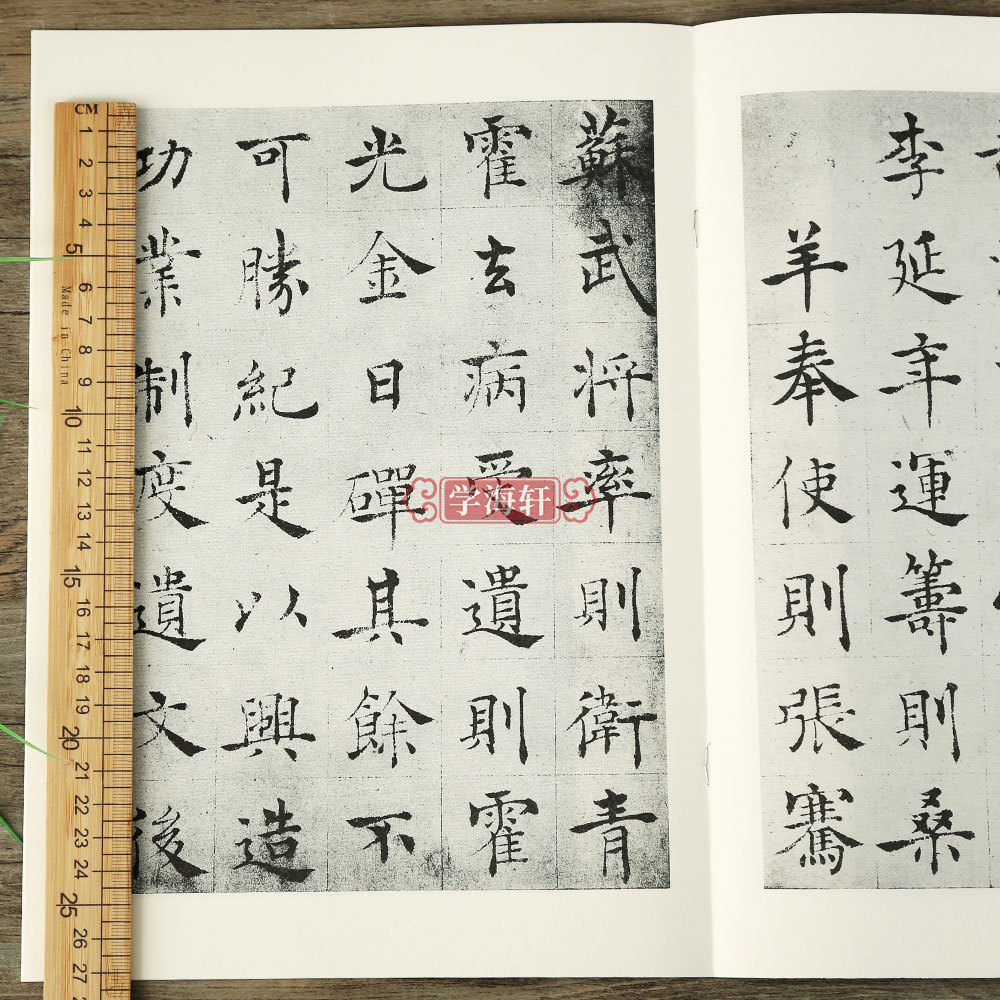 李延年運籌則桑
羊奉使則張騫
蘇武将率則衛青
霍去病受遺則霍
光金日磾其餘不
可勝紀是以興造
功業制度遺文後
学海轩
CM
1
2
3
4
5
6
7
8
9
10
11
12
13
14
15
16
17
18
19
20
21
22
23
24
25
26
27
Made in China